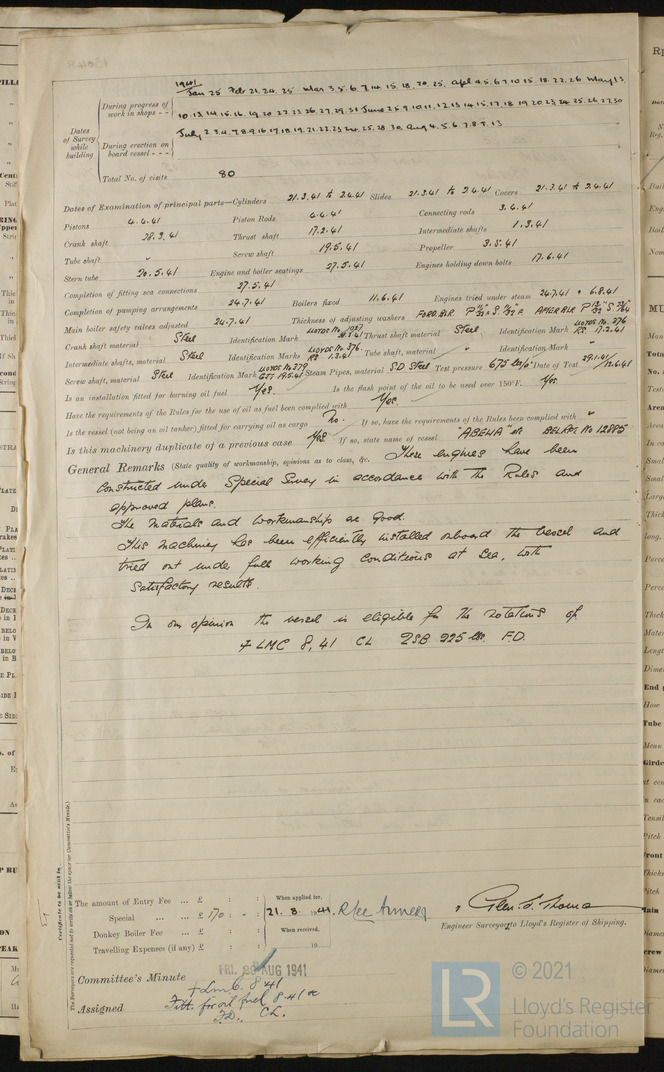 1941
Jan 25 Feb 21. 24. 25 Mar 3. 5. 6. 7. 14. 15. 18. 20. 25. Apl 4. 5. 6. 7. 10. 15. 18. 22. 26 May 1. 3.
During progress of work in shops - -
10. 13. 14. 15. 16. 19. 20. 22. 23. 26. 27. 29. 31 June 2. 5. 9. 10. 11. 12. 13. 14. 15. 17. 18. 19. 20. 23. 24. 25. 26. 27. 30
Dates of Survey while building
July 2. 3. 4. 7. 8. 9. 16. 17. 18. 19. 21. 22. 23. 24. 25. 28. 30. Aug 4. 5. 6. 7. 8. 13
During erection on board vessel - - -
Total No. of visits 80
Dates of Examination of principal parts—Cylinders 21.3.41 to 2.4.41 Slides 21.3.41 to 2.4.41 Covers 21.3.41 to 2.4.41
Pistons 4.4.41 Piston Rods 4.4.41 Connecting rods 3.4.41
Crank shaft 28.3.41 Thrust shaft 17.2.41 Intermediate shafts 1.3.41
Tube shaft " Screw shaft 19.5.41 Propeller 3.5.41
Stern tube 20.5.41 Engine and boiler seatings 27.5.41 Engines holding down bolts 17.6.41
Completion of fitting sea connections 27.5.41
Completion of pumping arrangements 24.7.41 Boilers fixed 11.6.41 Engines tried under steam 24.7.41 & 6.8.41
Main boiler safety valves adjusted 24.7.41 Thickness of adjusting washers
Crank shaft material Steel Identification Mark Thrust shaft material Steel Identification Mark LLOYDS No. 376 RS 17.2.41
Intermediate shafts, material Steel Identification Marks LLOYDS No. 376. RS 1.3.41 Tube shaft, material " Identification Mark "
Screw shaft, material Steel Identification Mark LLOYDS No 379 19.5.41 Steam Pipes, material S.D Steel Test pressure 675 lbs/□" Date of Test 29.1.41 / 12.6.41
Is an installation fitted for burning oil fuel Yes. Is the flash point of the oil to be used over 150°F. Yes.
Have the requirements of the Rules for the use of oil as fuel been complied with Yes.
Is the vessel (not being an oil tanker) fitted for carrying oil as cargo No. If so, have the requirements of the Rules been complied with "
Is this machinery duplicate of a previous case Yes If so, state name of vessel
General Remarks (State quality of workmanship, opinions as to class, &c. These engines have been
constructed under Special Survey in accordance with the Rules and
approved plans.
The materials and workmanship are good.
This machinery has been efficiently installed onboard the vessel and
tried out under full working conditions at Sea, with
satisfactory results.
In our opinion the vessel is eligible for the notations of
+ LMC 8,41 CL 2SB 225 lbs. FD.
Certificate to be sent to
The Surveyors are requested not to write on or below the space for Committee's Minute.
The amount of Entry Fee ... £ : :
Special ... ... £ 170 : - :
Donkey Boiler Fee ... £ : :
Travelling Expenses (if any) £ : :
When applied for,
21. 8. 1941.
When received,
19
Engineer Surveyor to Lloyd's Register of Shipping.
Committee's Minute FRI. 29 AUG 1941
Assigned + Lmc. 8.41
Fitt. for oil fuel 8.41
F.D., CL.
LR
© 2021
Lloyd's Register
Foundation